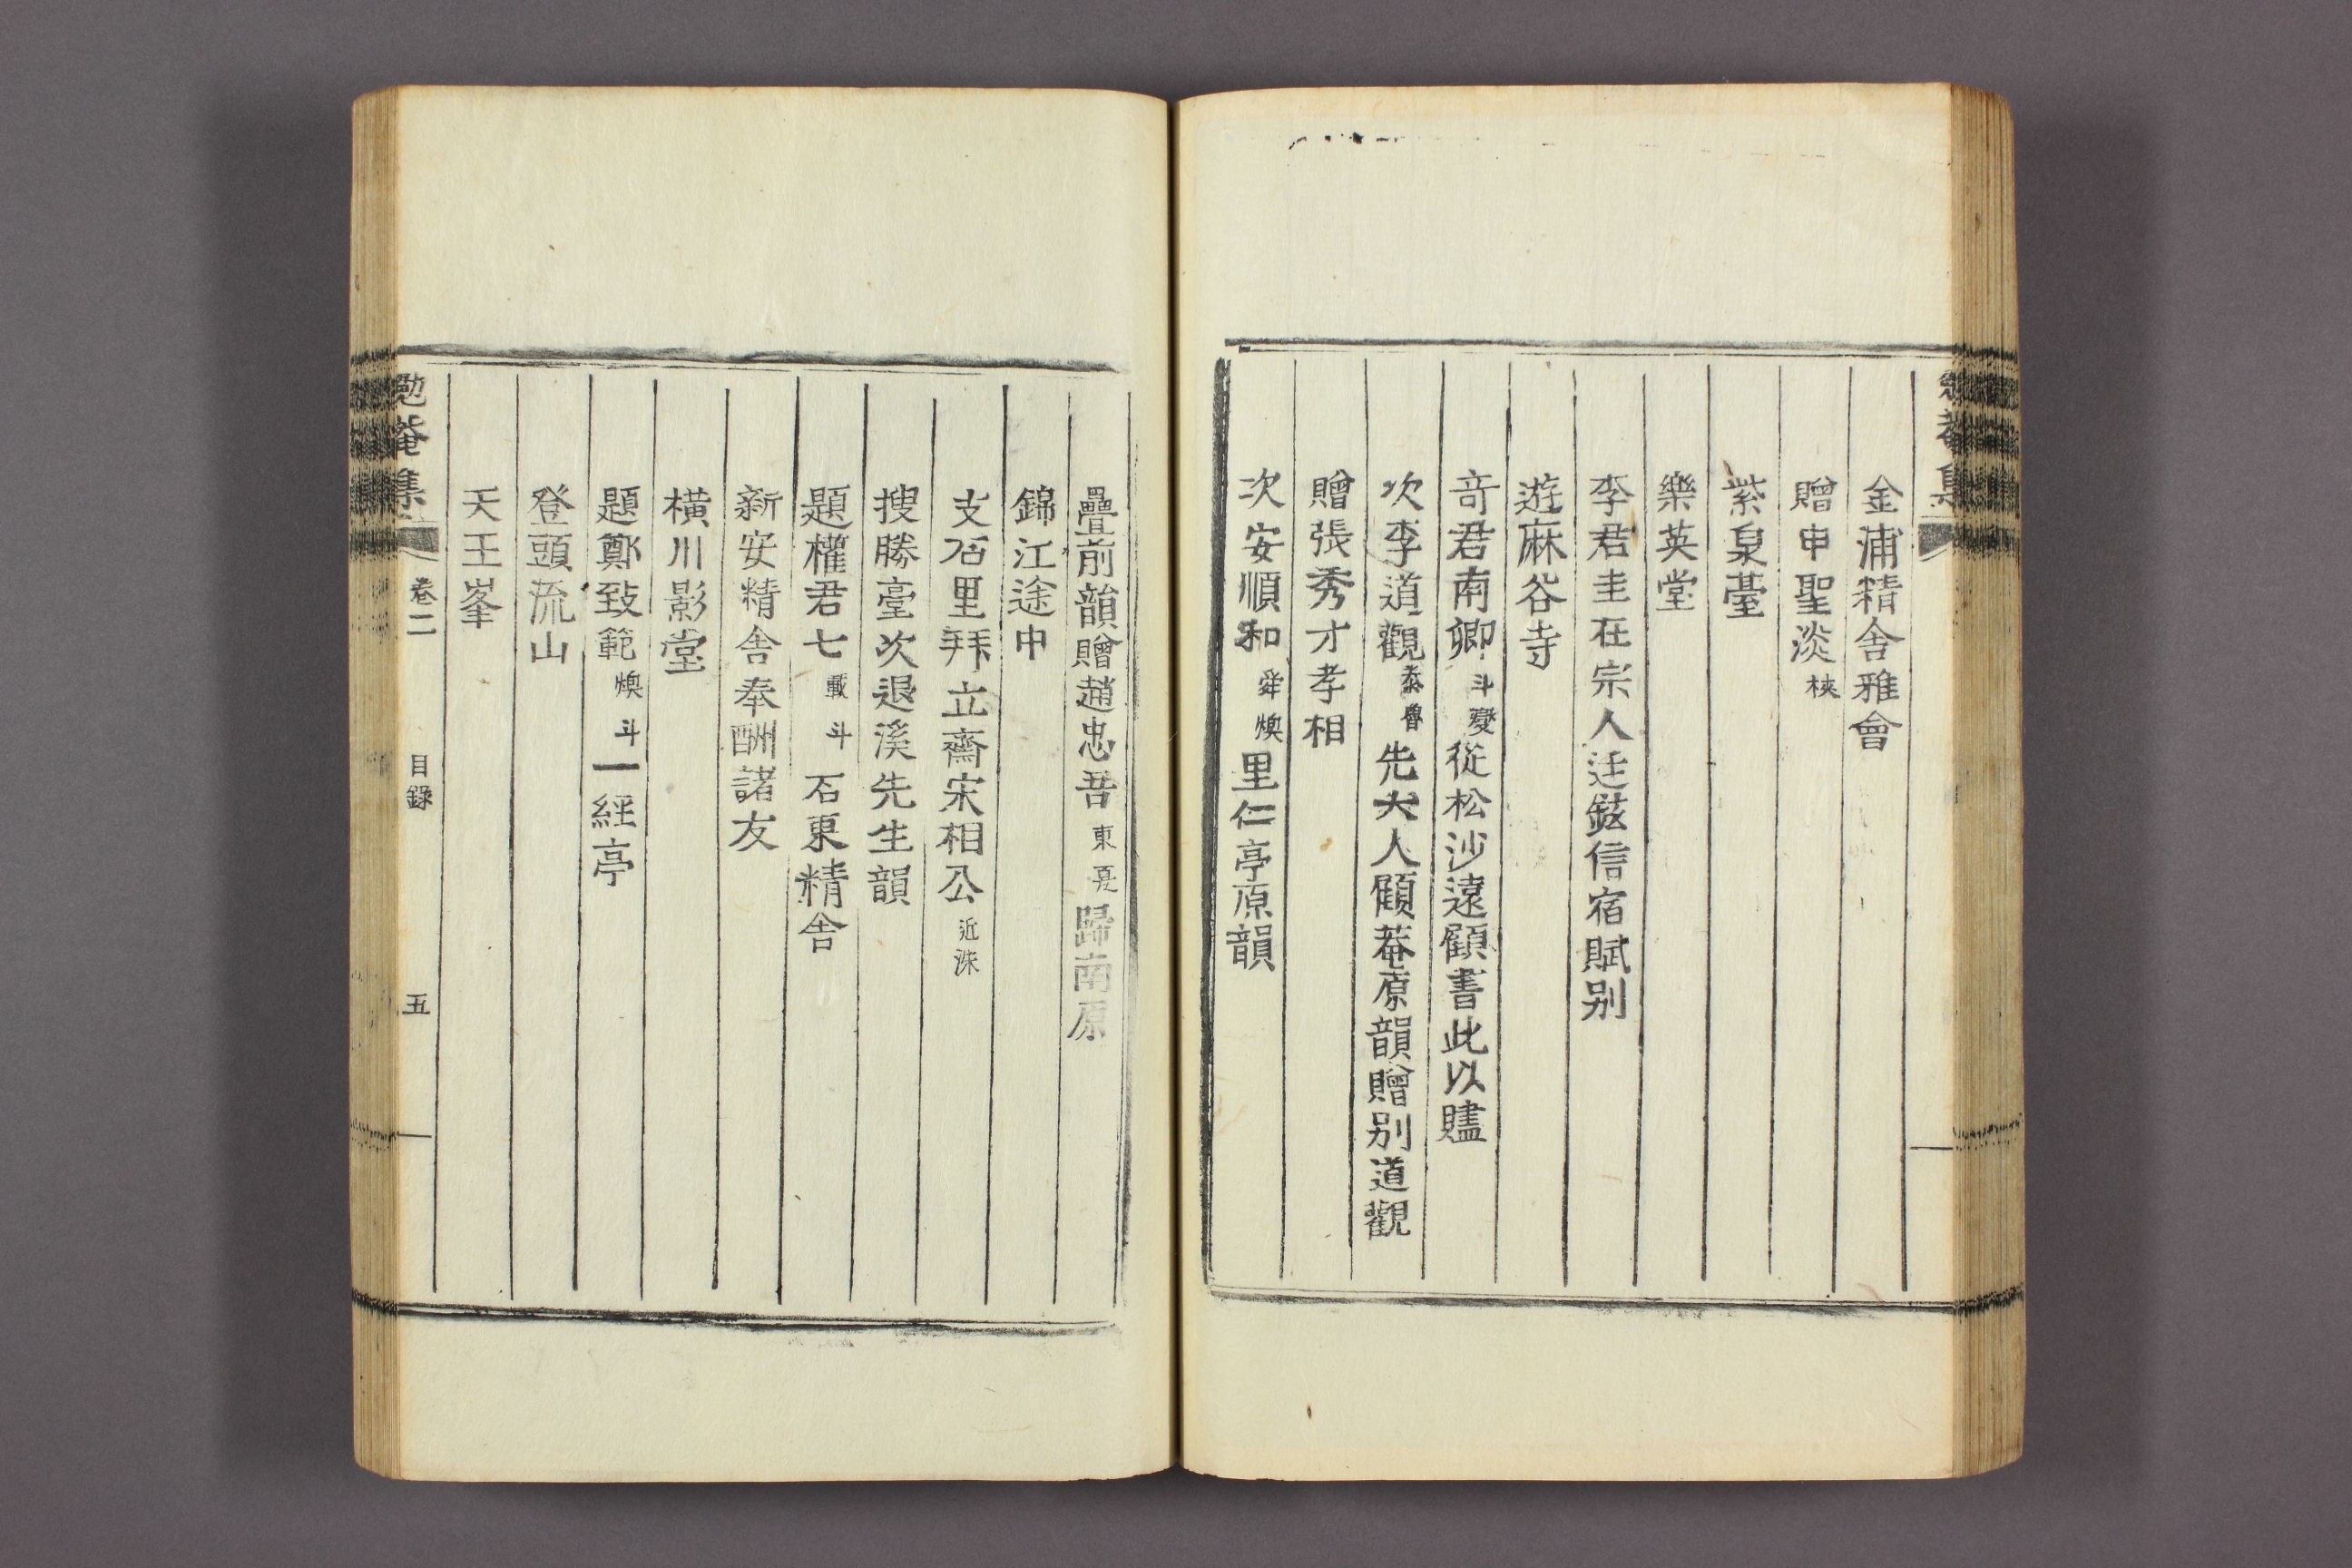 金浦精舍雅會
贈申聖淡梜
紫泉臺
樂英堂
李君圭在宗人廷鉉信宿賦别
遊麻谷寺
竒君南卿斗燮從松沙遠顧書此以贐
次李道觀泰魯先大人顧菴原韻贈别道觀
贈張秀才孝相
次安順和舜煥里仁亭原韻
疊前韻贈趙忠吾東夏歸南原
錦江途中
支石里拜立齋宋相公近洙
搜勝臺次退溪先生韻
題權君七載斗石東精舍
新安精舍奉酬諸友
橫川影堂
題鄭致範煥斗一經亭
登頭流山
天王峯
勉菴集 卷二 目録 五